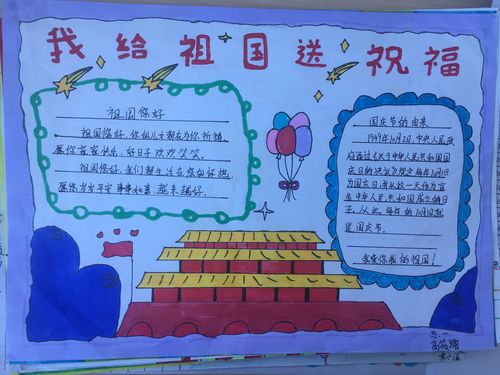 我给祖国送祝福
祖国您好
祖国您好,你的儿女都在为你祈祷,
愿你喜喜快乐,好日子欢欢笑笑。
祖国您好,我们都生活在您的怀抱,
愿您岁岁平安事事如意,越来越好。
国庆节的由来
1949年10月2日,中央人民政
府通过《关于中华人民共和国国
庆日的决议》规定每年10月1日
为国庆日,并以这一天作为宣
告中华人民共和国成立的日
子。从此,每年的10月1日就
是国庆节。
我爱你我的祖国!
四.一